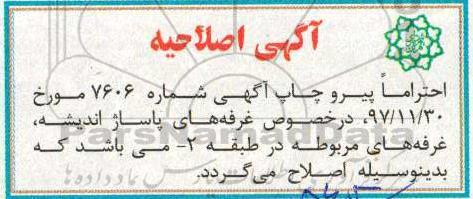 آگهی اصلاحیه
احتراماً پیرو چاپ آگهی شماره ۷۶۰۶ مورخ
۹۷/۱۱/۳۰، درخصوص غرفه‌های پاساژ اندیشه،
غرفه‌های مربوطه در طبقه ۲- می باشد که
بدینوسیله اصلاح می‌گردد.
ParsNamadData